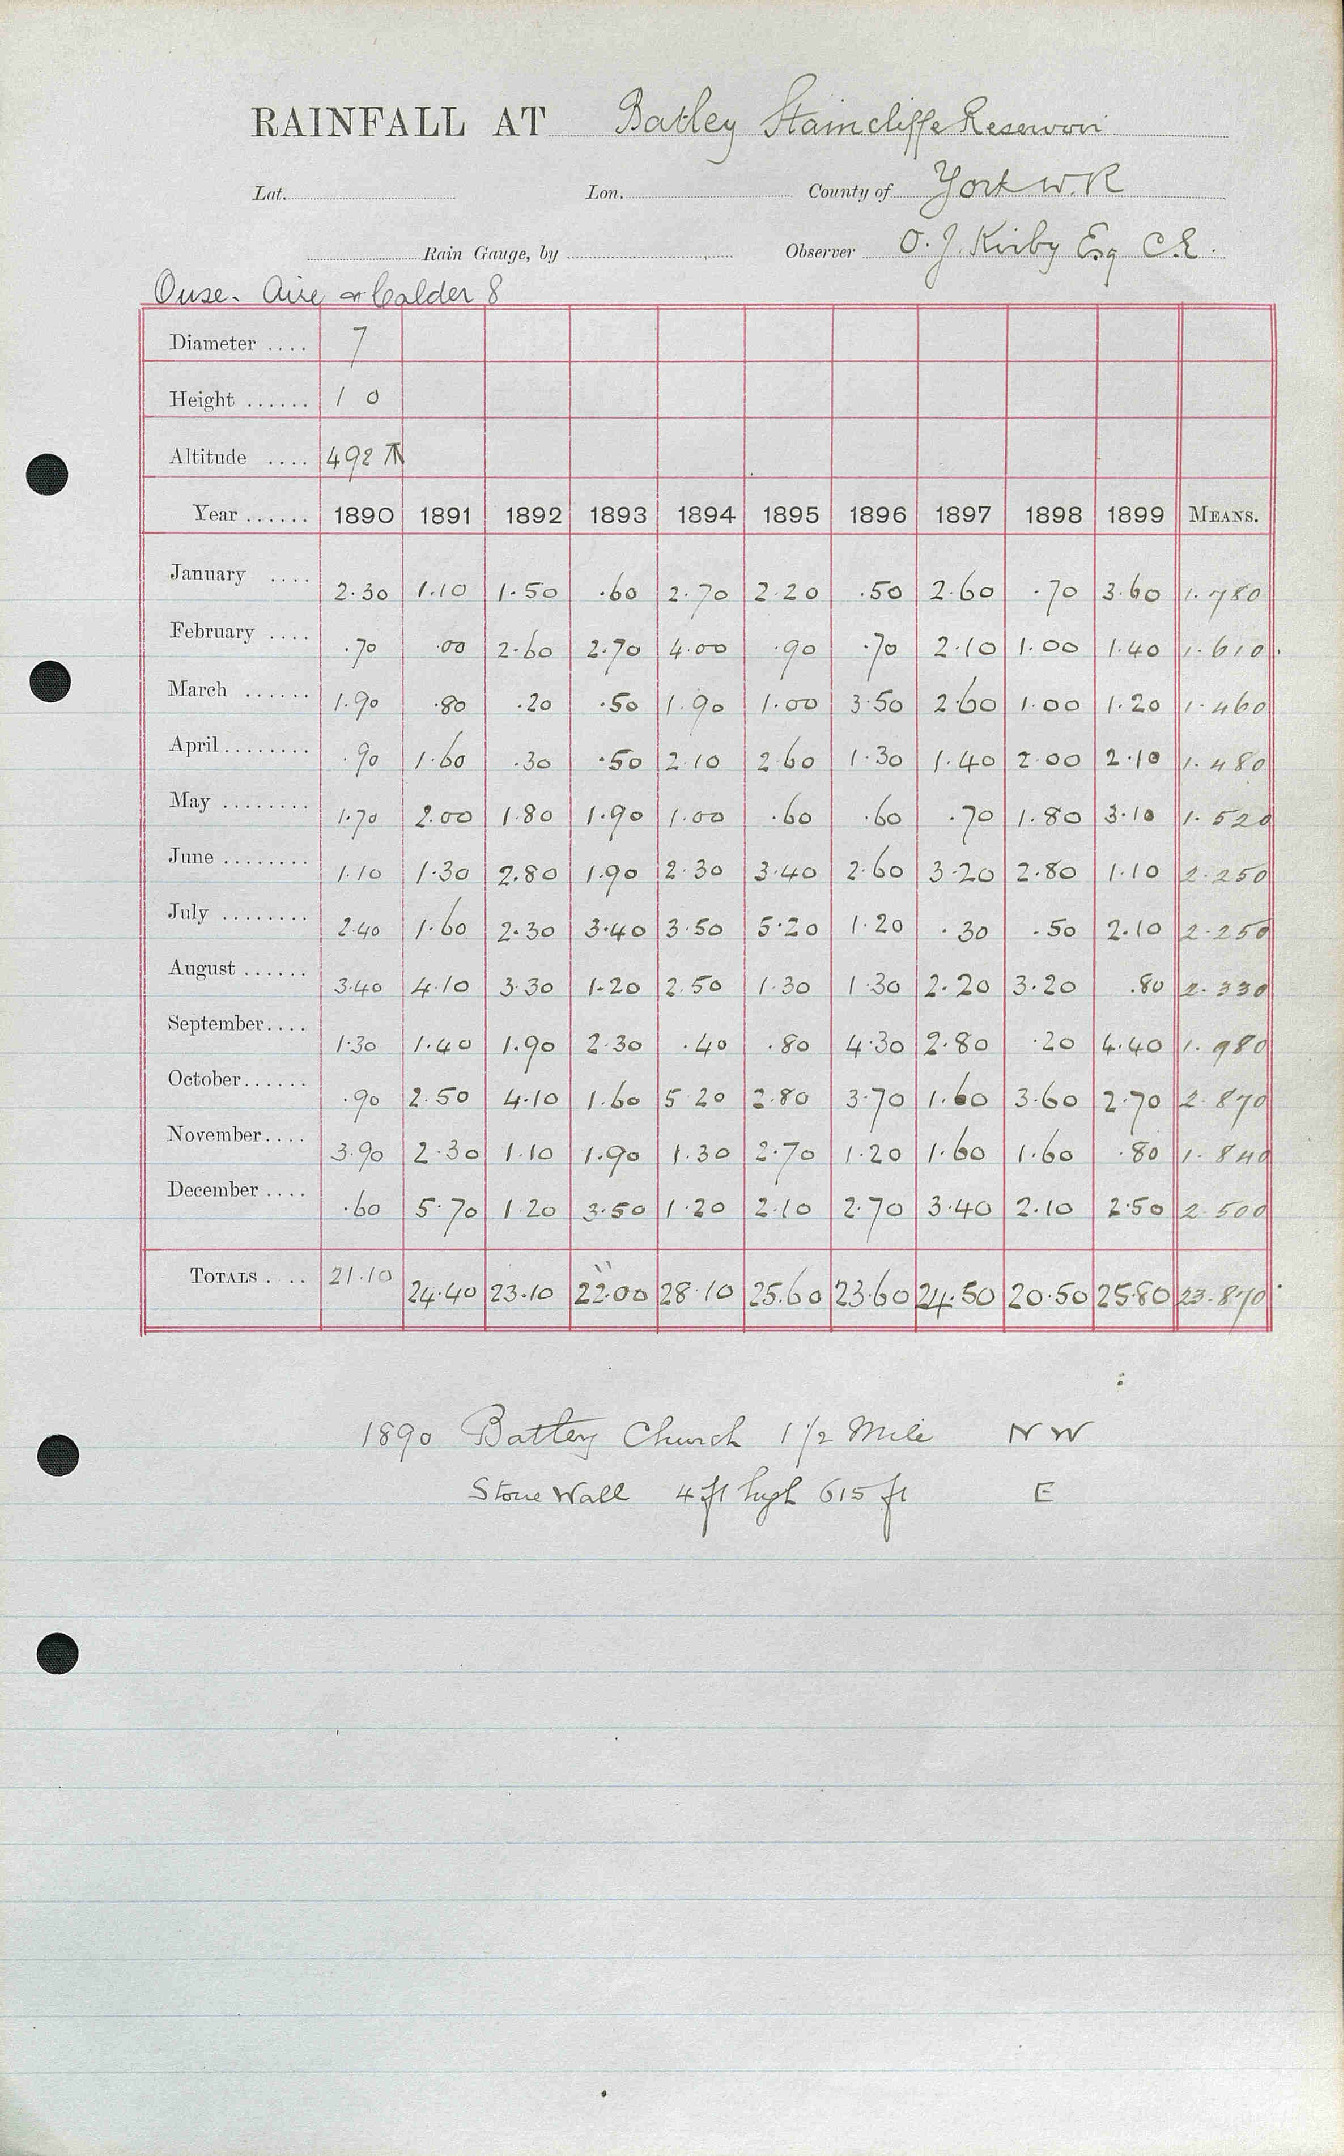 RAINFALL AT Batley Staincliffe Reservoir
Lat. Lon. County of York W.R
Rain Gauge, by Observer O. J. Kirby Esq C.E.
Ouse. Aire & Calder 8
Diameter .... 7
Height ...... 1 0
Altitude .... 492
Year ...... 1890 1891 1892 1893 1894 1895 1896 1897 1898 1899 MEANS.
January .... 2.30 1.10 1.50 .60 2.70 2.20 .50 2.60 .70 3.60 1.780
February .... .70 .00 2.60 2.70 4.00 .90 .70 2.10 1.00 1.40 1.610
March ...... 1.90 .80 .20 .50 1.90 1.00 3.50 2.60 1.00 1.20 1.460
April ........ .90 1.60 .30 .50 2.10 2.60 1.30 1.40 2.00 2.10 1.480
May ........ 1.70 2.00 1.80 1.90 1.00 .60 .60 .70 1.80 3.10 1.520
June ........ 1.10 1.30 2.80 1.90 2.30 3.40 2.60 3.20 2.80 1.10 2.250
July ........ 2.40 1.60 2.30 3.40 3.50 5.20 1.20 .30 .50 2.10 2.250
August ...... 3.40 4.10 3.30 1.20 2.50 1.30 1.30 2.20 3.20 .80 2.330
September .... 1.30 1.40 1.90 2.30 .40 .80 4.30 2.80 .20 4.40 1.980
October ...... .90 2.50 4.10 1.60 5.20 2.80 3.70 1.60 3.60 2.70 2.870
November .... 3.90 2.30 1.10 1.90 1.30 2.70 1.20 1.60 1.60 .80 1.840
December .... .60 5.70 1.20 3.50 1.20 2.10 2.70 3.40 2.10 2.50 2.500
TOTALS .... 21.10 24.40 23.10 22.00 28.10 25.60 23.60 24.50 20.50 25.80 23.870
1890 Batley Church 1 1/2 Mile NW
Stone Wall 4 ft high 615 ft E